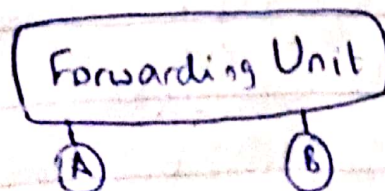 Forwarding Unit
A B